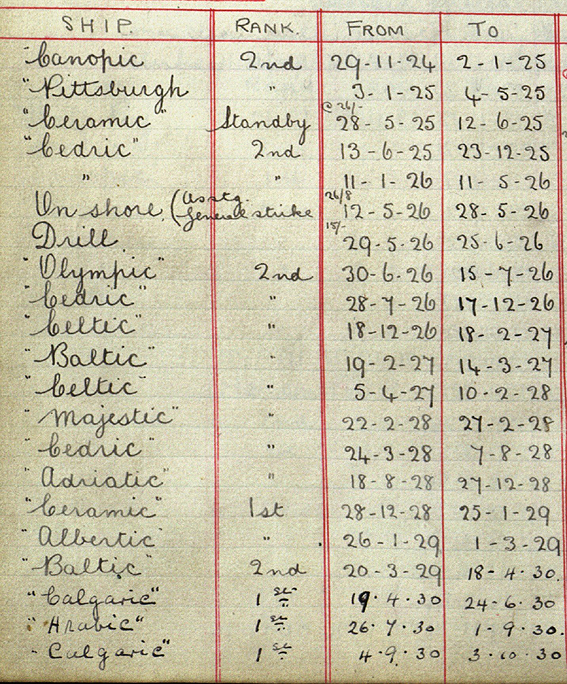 SHIP. RANK. FROM TO
"Canopic 2nd 29-11-24 2-1-25
"Pittsburgh " 3-1-25 4-5-25
"Ceramic" Standby 28-5-25 12-6-25
"Cedric" 2nd 13-6-25 23-12-25
" " 11-1-26 11-5-26
On shore (Asstg. General strike 26/8 12-5-26 28-5-26
Drill. 15/- 29-5-26 25-6-26
"Olympic" 2nd 30-6-26 15-7-26
"Cedric" " 28-7-26 17-12-26
"Celtic" " 18-12-26 18-2-27
"Baltic" " 19-2-27 14-3-27
"Celtic" " 5-4-27 10-2-28
"Majestic" " 22-2-28 27-2-28
"Cedric" " 24-3-28 7-8-28
"Adriatic" " 18-8-28 27-12-28
"Ceramic" 1st 28-12-28 25-1-29
"Albertic" " 26-1-29 1-3-29
"Baltic" 2nd 20-3-29 18-4-30.
"Calgaric" 1st 19.4.30 24-6.30
"Arabic" 1st 26.7.30 1-9.30.
"Calgaric" 1st 4.9.30 3.10.30